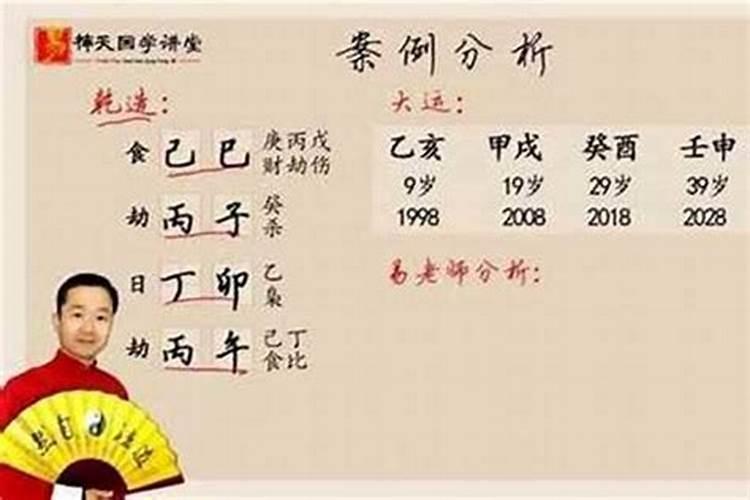 易 禅天国学讲堂
案例分析
乾造：
食 己 巳 庚丙戊
财劫伤
劫 丙 子 癸
杀
日 丁 卯 乙
枭
劫 丙 午 己丁
食比
大运：
乙亥 甲戌 癸酉 壬申
9岁 19岁 29岁 39岁
1998 2008 2018 2028
易老师分析：